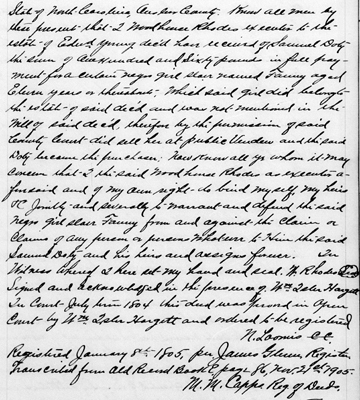 State of North Carolina, Onslow County. Know all men by
these present that I Woodhouse Rhodes executor to the
estate of Edwd Young decd have received of Samuel Doty
the sum of one hundred and sixty pounds in full pay-
ment for a certain negro girl slave named Fanny aged
Eleven years or thereabout; Which said girl did belong to
the estate of said decd and was not mentioned in the
Will of said decd, therefore by the permission of said
County Court did sell her at public Vendue and the said
Doty became the purchaser; Now Know all ye whom it may
concern that I the said Woodhouse Rhodes as executor a-
foresaid and of my own right do bind myself my heirs
&C Jointly and severally to warrant and defend the said
negro girl slave Fanny from and against the Claim or
Claims of any person or persons Whatsoever to Him the said
Samuel Doty and his heirs and assigns forever. In
Witness whereof I here set my hand and seal. W. Rhodes Seal
Signed and acknowledged in the presence of Wm Lester Hargett
In Court July term 1804 this deed was proved in Open
Court by Wm Lester Hargett and ordered to be registered
N. Loomis C.C.
Registered January 8th 1805, per James Glenn, Register
Transcribed from Old Record Book page Nov. 21st 1905.
M. M. Capps Reg of Deeds.